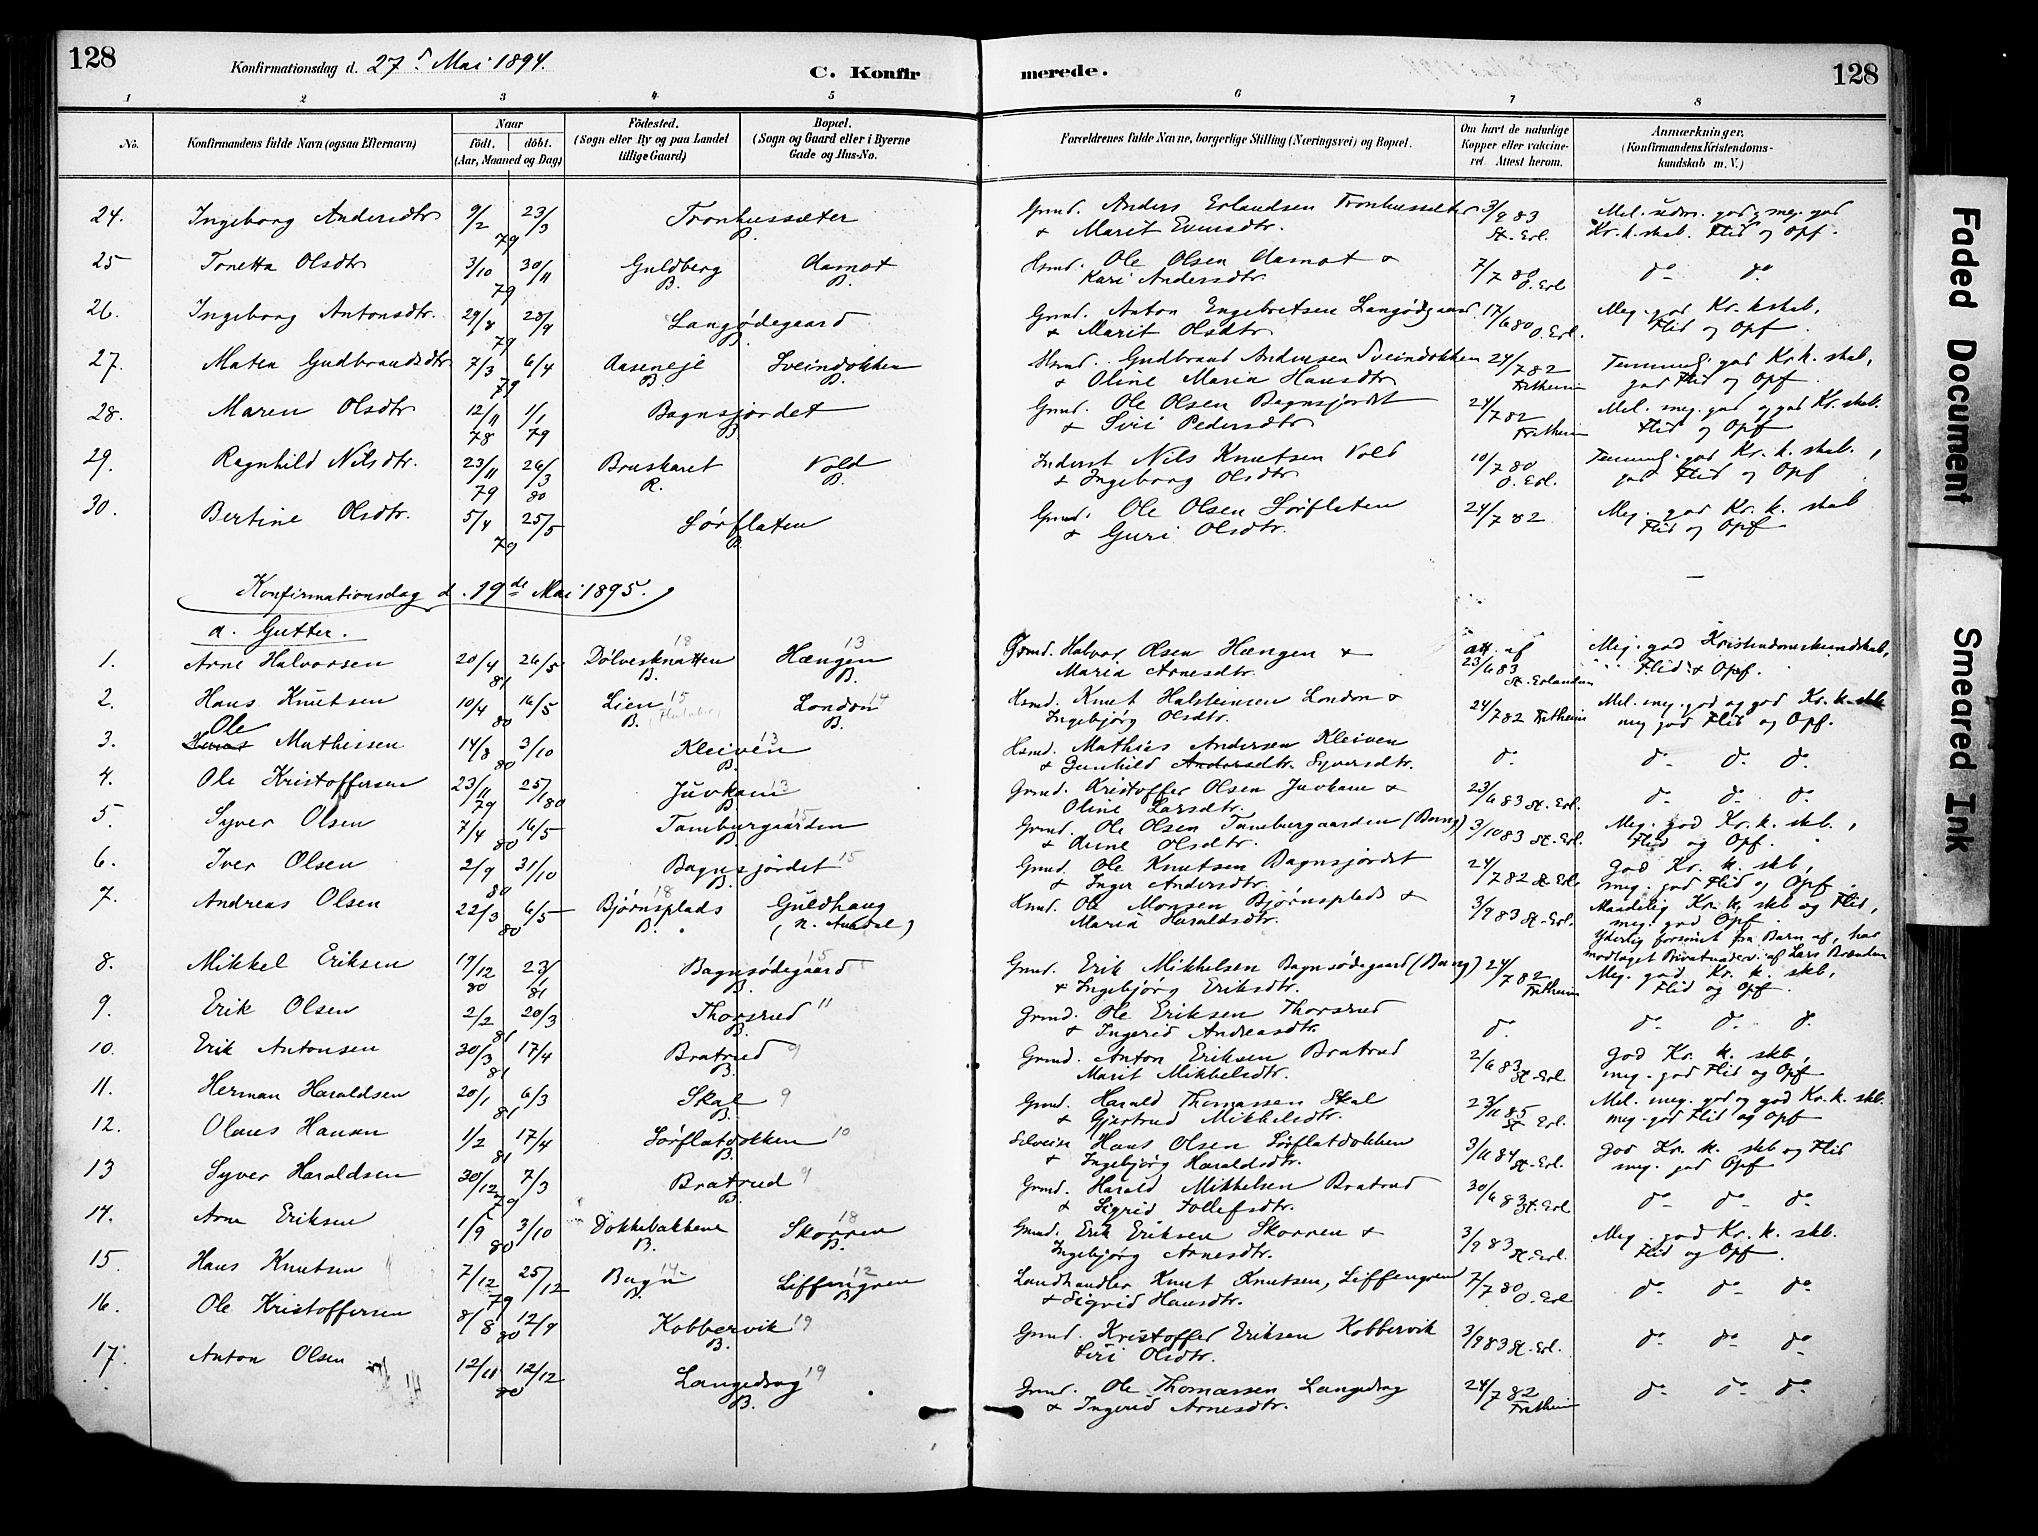 128
Konfirmationsdag d. 27de Mai 1894.
C. Konfirmerede.
128
1 2 3 4 5 6 7 8
No.
Konfirmandens fulde Navn (ogsaa Efternavn)
Naar
födt. döbt.
(Aar, Maaned og Dag)
Födested.
(Sogn eller By og paa Landet
tillige Gaard)
Bopæl.
(Sogn og Gaard eller i Byerne
Gade og Hus-No.
Forældrenes fulde Navne, borgerlige Stilling (Næringsvei) og Bopæl.
Om havt de naturlige
Kopper eller vaccine-
ret. Attest herom.
Anmærkninger.
(Konfirmandens Kristendoms-
kundskab m. V.)
24. Ingeborg Andersdtr 9/2 79 23/3 Tronhussæter B. Grmd. Anders Erlandsen Tronhussæter 3/9 83 Mel. udm. god og meg. god
& Marit Evensdtr. St. Erl. Kr. k. skab. Flid og Opf.
25 Tonetta Olsdtr 3/10 79 30/11 Guldberg B. Aamot B. Hsmd. Ole Olsen Aamot & 7/7 80 O. Erl. do do
Kari Andersdtr.
26. Ingeborg Antonsdtr. 29/8 79 28/9 Langødegaard B. Grmd. Anton Engebretsen Langødgaard 17/6 80 O. Erl. Meg. god Kr. kskab,
& Marit Olsdtr Flid og Opf.
27. Matea Gudbrandsdtr 7/3 79 6/4 Aaseneje B. Sveindokken B. Hsmd. Gudbrand Andersen Sveindokken 24/7 82 Temmel. god Kr. k. skab,
& Oline Maria Hansdtr Fritheim god Flid og Opf.
28. Maren Olsdtr 12/11 78 1/1 79 Bagnsjordet B. Grmd. Ole Olsen Bagnsjordet 24/7 82 Mel. meg. god og god Kr. skab.
& Siri Pedersdtr Fritheim Flid og Opf
29. Ragnhild Nilsdtr. 23/11 79 26/3 80 Bruskaret R. Vold B. Inderst Nils Knutsen Vold 10/7 80 Temmel. god Kr. k. skab,
& Ingeborg Olsdtr O. Erl. god Flid og Opf.
30. Bertine Olsdtr. 5/4 79 25/5 Sørflaten B. Grmd. Ole Olsen Sørflaten 24/7 82 Meg. god Kr. k. skab
& Guri Olsdtr. Flid og Opf
Konfirmationsdag d. 19de Mai 1895.
a. Gutter.
1. Arne Halvorsen 20/4 81 26/5 Dølvesknatten 18 B. Hængen 13 B. Grmd. Halvor Olsen Hængen & att. af Meg. god Kristendomskundskab,
Maria Arnesdtr. 23/6 83 St. Erlandsen Flid & Opf.
2. Hans Knutsen 10/4 80 16/5 Lien 15 B. London 14 B. Hsmd. Knut Halsteinsen London & 24/7 82 Fritheim Mel. meg. god og god Kr. k. skb
Ingebjørg Olsdtr. meg god Flid og Opf.
3. Ole Mathissen 14/8 80 3/10 Kleiven 13 B. Hsmd. Mathies Andersen Kleiven do do do do
& Gunhild Andersdtr. Syversdtr.
4. Ole Kristoffersen 23/11 79 25/1 80 Juvkam 13 B. Grmd. Kristoffer Olsen Juvkam & 23/6 83 St. Erl. do do do
Oline Larsdtr.
5. Syver Olsen 7/4 80 16/5 Tamburgaarden 15 B. Grmd. Ole Olsen Tamburgaarden (Bang) 3/10 83 St. Erl. Meg. god Kr. k. skb.,
& Anne Olsdtr. Flid og Opf.
6. Iver Olsen 2/9 80 31/10 Bagnsjordet 15 B. Grmd. Ole Knutsen Bagnsjordet 24/7 82 St. Erl. God Kr. k. skb,
& Inger Andersdtr. meg. god Flid og Opf.
7. Andreas Olsen 22/3 80 6/5 Bjørnsplads 18 B. Guldhaug (N. Aurdal) Hsmd. Ole Monsen Bjørnsplads & 3/9 83 St. Erl. Maadelig Kr. k. skb og Flid,
Maria Haraldsdtr. meg. god Opf.
Yderlig forsømt fra Barn af, har
modtaget Privatunderv. af Lars Brænden
8. Mikkel Eriksen 19/12 80 23/ 81 Bagnsødegaard 15 B. Grmd. Erik Mikkelsen Bagnsødegaard (Bang) 24/7 82 Meg. god Kr. k. skb,
& Ingebjørg Eriksdtr. Fritheim Flid og Opf.
9. Erik Olsen 2/2 81 20/3 Thorsrud 11 B. Grmd. Ole Eriksen Thorsrud do do do do
& Ingerid Andreasdtr.
10. Erik Antonsen 30/3 81 17/4 Bratrud 9 B. Grmd. Anton Eriksen Bratrud 2/6 83 God Kr. k. skb,
Marit Mikkelsdtr. St. Erl. meg. god Flid og Opf
11. Herman Haraldsen 20/1 81 6/3 Skal 9 B. Grmd. Harald Thomassen Skal 23/11 85 Mel. meg. god og god Kr. k. skb.
& Gjertrud Mikkelsdtr. St. Erl. meg. god Flid og Opf
12. Olaus Hansen 1/2 81 17/4 Sørflatdokken 10 B. Selveier Hans Olsen Sørflatdokken 3/11 84 St. Erl. God Kr. k. skb og Flid
& Ingebjørg Haraldsdtr. meg. god Opf
13 Syver Haraldsen 30/12 79 7/3 Bratrud 9 B. Grmd. Harald Mikkelsen Bratrud 30/6 83 St. Erl do do do
& Sigrid Tollefsdtr.
14. Arne Eriksen 1/9 80 3/10 Dokkebakkene B. Skorren 18 B. Grmd. Erik Eriksen Skorren & 3/9 83 St. Erl. Meg. god Kr. k. skb.
Ingebjørg Arnesdtr. Flid og Opf.
15. Hans Knutsen 7/12 79 25/12 Bagn 14 B. Liffengren 12 B. Landhandler Knut Knutsen, Liffengren 7/7 80 O. Erl do do do
& Sigrid Hansdtr.
16. Ole Kristoffersen 8/8 80 12/9 Kobbervik 19 B. Grmd. Kristoffer Eriksen Kobbervik 3/9 83 St. Erl. do do do
Siri Olsdtr.
17. Anton Olsen 12/11 80 12/12 Langedrag 19 B. Grmd. Ole Thomassen Langedrag 24/7 82 do do do
& Ingerid Arnesdtr. Fritheim
Faded Document
Smeared Ink